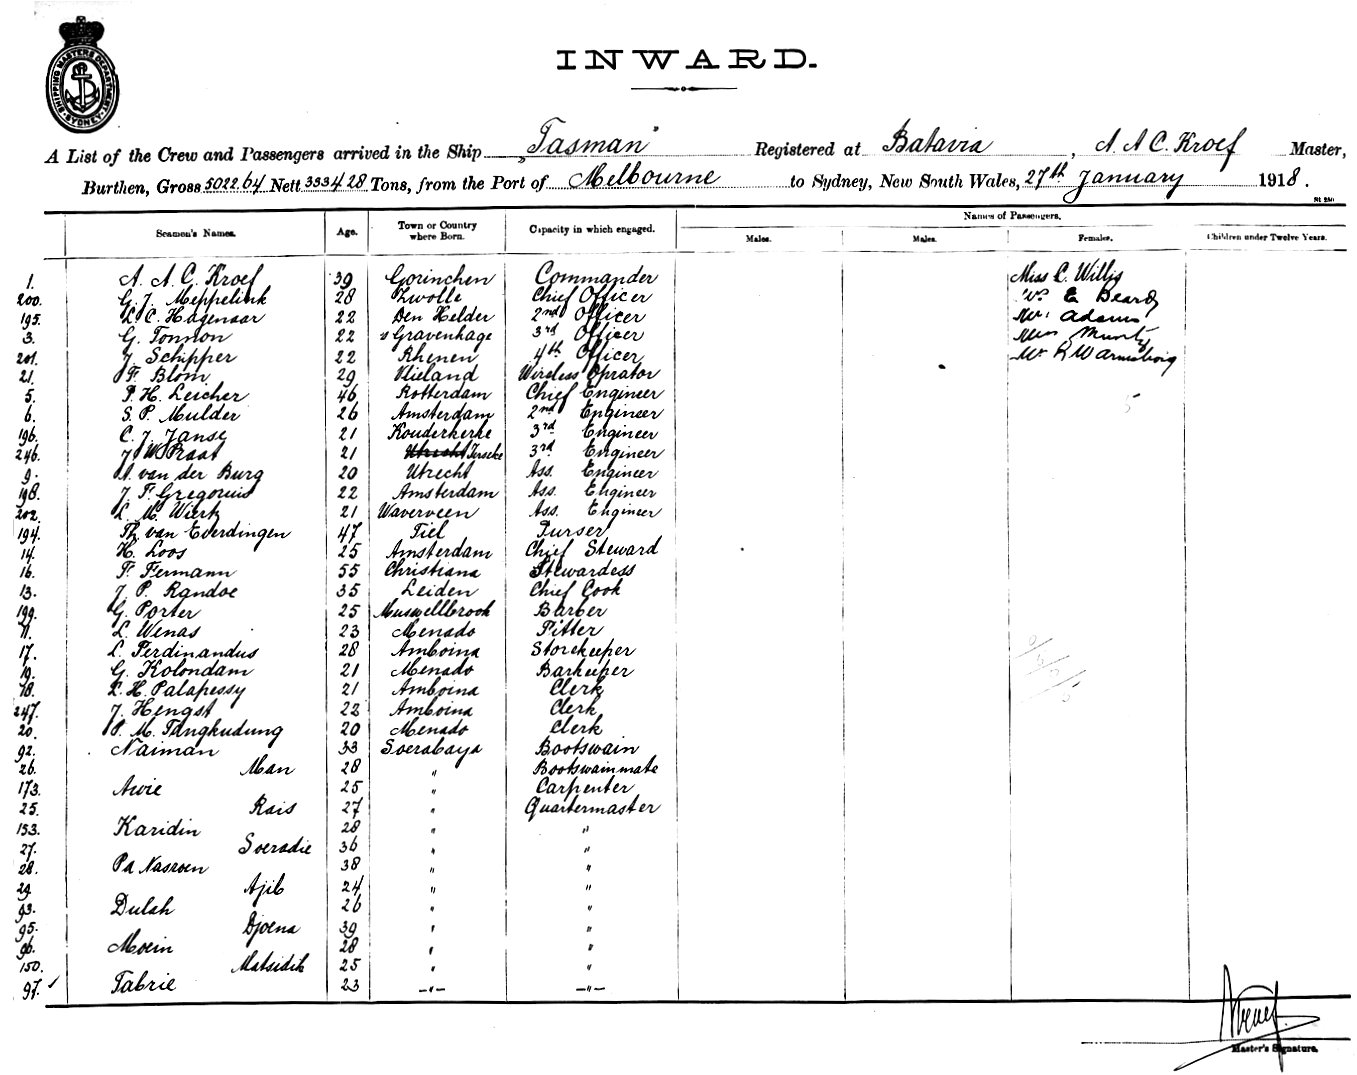 SHIPPING MASTERS DEPARTMENT SYDNEY
INWARD.
A List of the Crew and Passengers arrived in the Ship „Tasman" Registered at Batavia, A A C. Kroef Master,
Burthen, Gross 5022.64 Nett 3334 28 Tons, from the Port of Melbourne to Sydney, New South Wales, 27th January 1918.
St 250
Seamen's Names. Age. Town or Country where Born. Capacity in which engaged. Names of Passengers.
Males. Males. Females. Children under Twelve Years.
1. A. A. C. Kroef 39 Gorinchen Commander Miss C. Willis
200. G. J. Meppelink 28 Zwolle Chief Officer E Beard
195. L. C. Hagenaar 22 Den Helder 2nd Officer Adams
3. G. Tonnon 22 's Gravenhage 3rd Officer
201. J. Schipper 22 Rhenen 4th Officer
21. F. Blom 29 Vlieland Wireless Oprator
5. P. H. Leicher 46 Rotterdam Chief Engineer
6. S. P. Mulder 26 Amsterdam 2nd Engineer
196. C. J. Janse 21 Kouderkerke 3rd Engineer
246. J W Praat 21 Utrecht Ierseke 3rd Engineer
9. A. van der Burg 20 Utrecht Ass. Engineer
198. J. F. Gregorius 22 Amsterdam Ass. Engineer
202. L. M. Wierk 21 Waverveen Ass. Engineer
194. Th. van Everdingen 47 Tiel Purser
14. H. Loos 25 Amsterdam Chief Steward
16. F. Fermann 55 Christiana Stewardess
13. J. P. Randoe 35 Leiden Chief Cook
199. G. Porter 25 Muswellbrook Barber
11. L. Wenas 23 Menado Fitter
17. L. Ferdinandus 28 Amboina Storekeeper
19. G. Kolondam 21 Menado Barkeeper
18. L. H. Palapessy 21 Amboina Clerk
247. J. Hengst 22 Amboina Clerk
20. P. M. Tangkudung 20 Menado Clerk
92. Naiman 33 Soerabaya Bootswain
26. Man 28 " Bootswainmate
173. Awie 25 " Carpenter
25. Rais 27 " Quartermaster
153. Karidin 28 " "
27. Soeradie 36 " "
28. Pa Nasroen 38 " "
29. Ajib 24 " "
93. Dulah 26 " "
95. Djoena 39 " "
96. Moein 28 " "
150. Matsidik 25 " "
97. Tabrie 23 —"— —"—
Master's Signature.